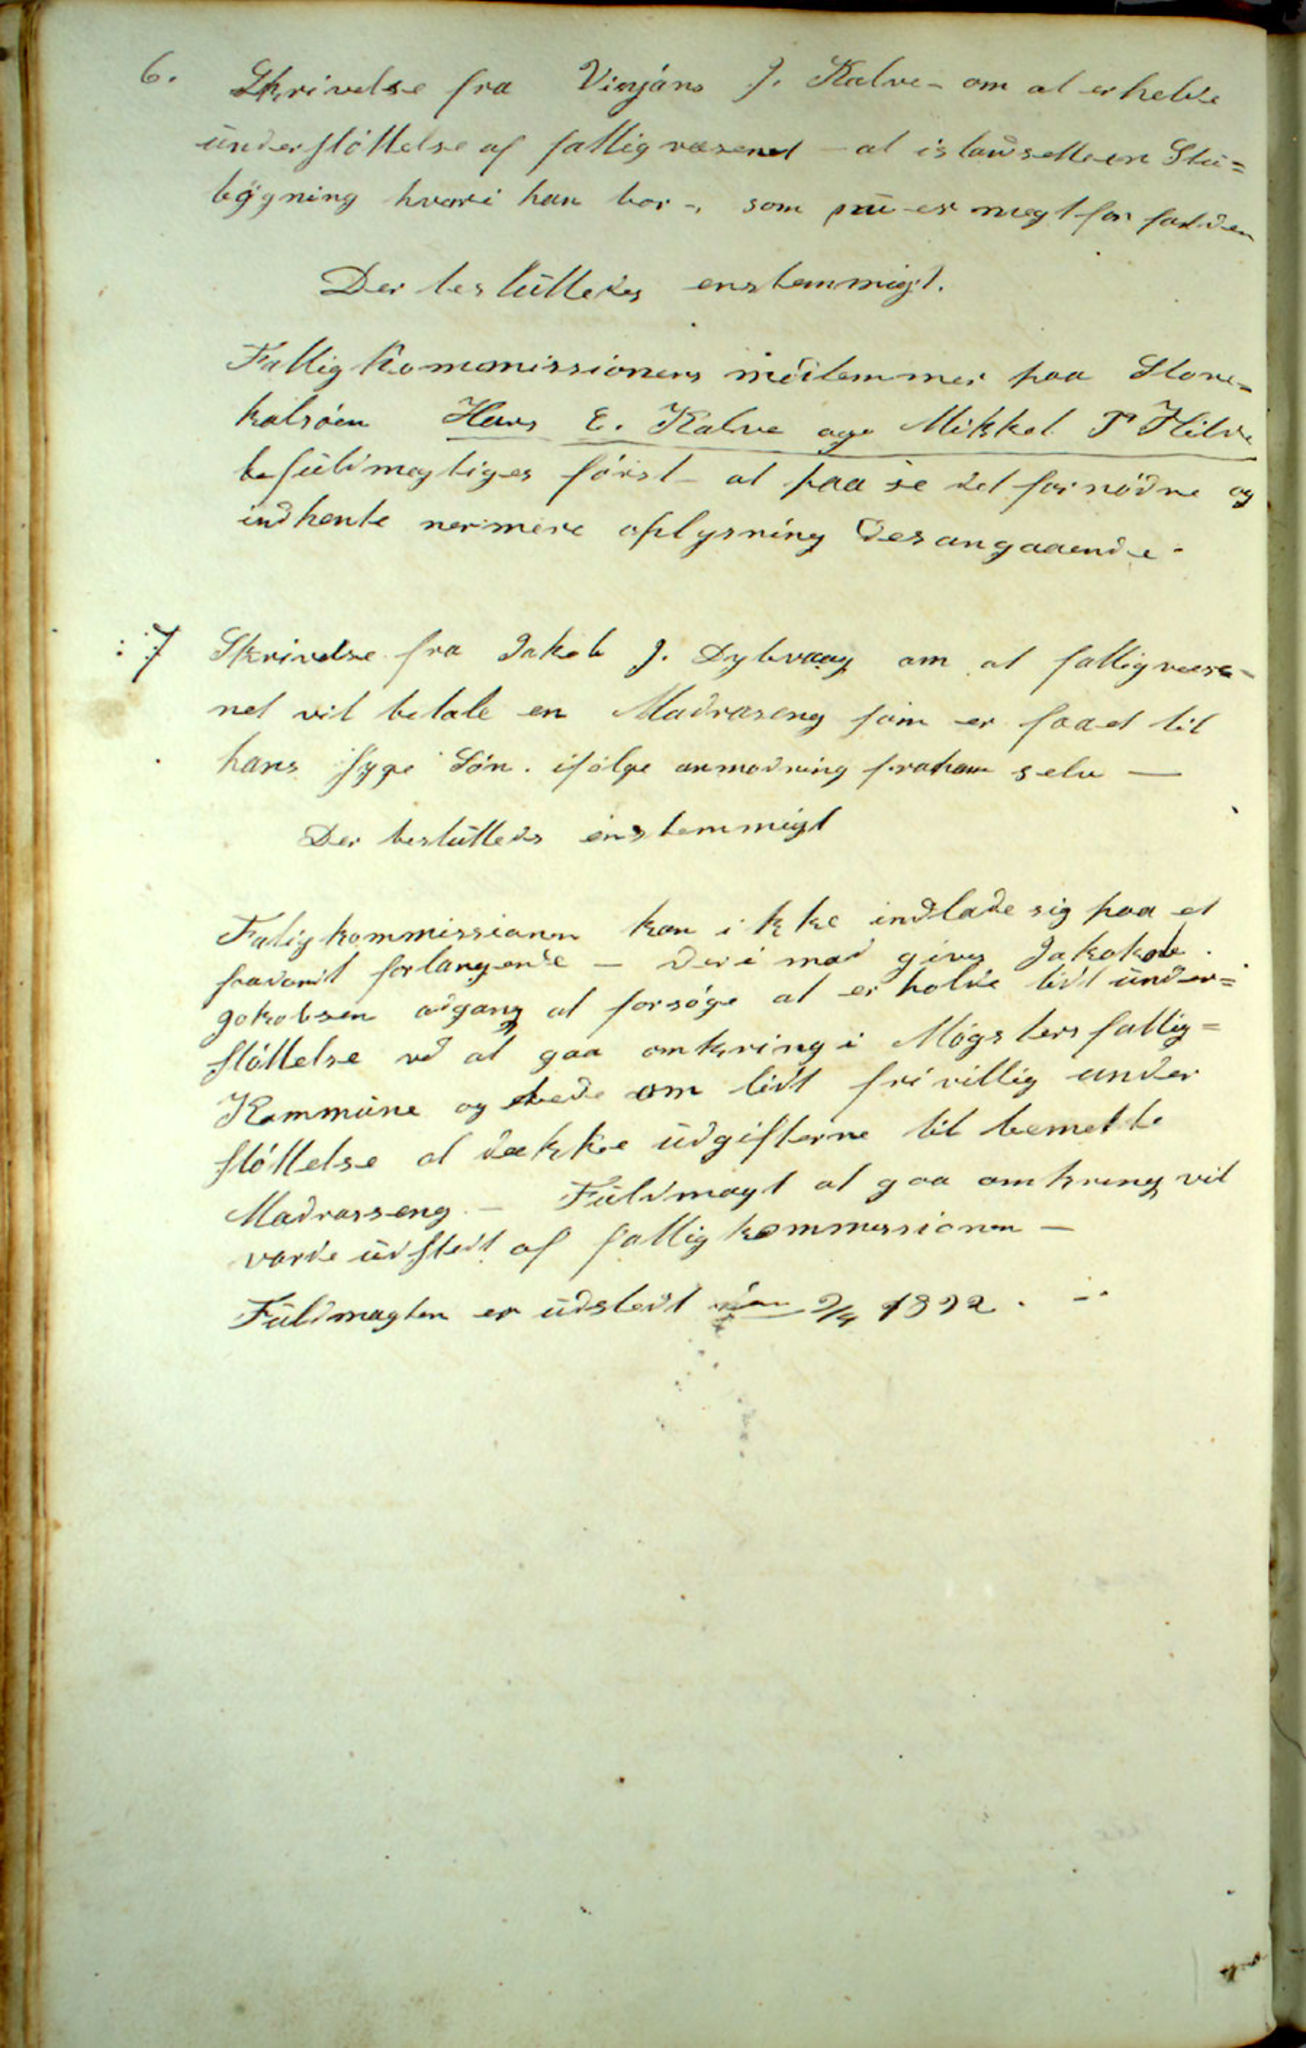 6. Skrivelse fra Vinjans J. Kalve - om at erholde
understöttelse af fattigvæsenet - at istandsette en Stu=
bÿgning hvori han bor -, som nu er megt forfalden
Der beslüttedes enstemmigt.
Fattigkommissionens medlemmer paa Store-
kalsöen Hans E. Kalve og Mikkel P Hilde
befuldmegtiges först at paase det fornödne og
indhente nermere oplysning desangaaende.
:7 Skrivelse fra Jakob J. Dybvaag om at fattigvæse-
net vil betale en Madraseng som er faaet til
hans syge Sön. ifölge anmodning fra ham selv —
Der beslüttedes enstemmigt
Fatigkommissionen kan ikke indlade sig paa et
forlangende - derimod gives
Jakobsen adgang at forsöge at erholde lidt under=
stöttelse vd at gaa omkring i Møgsters fattig=
Kommüne og bede om lidt frivillig under
stöttelse at dække üdgifterne til bemeldte
Madrasseng. - Fuldmagt at gaa omkring vil
vorde üdstedt af fattigkommissionen -
Füldmagten er üdstedt den 9/4 1892. -